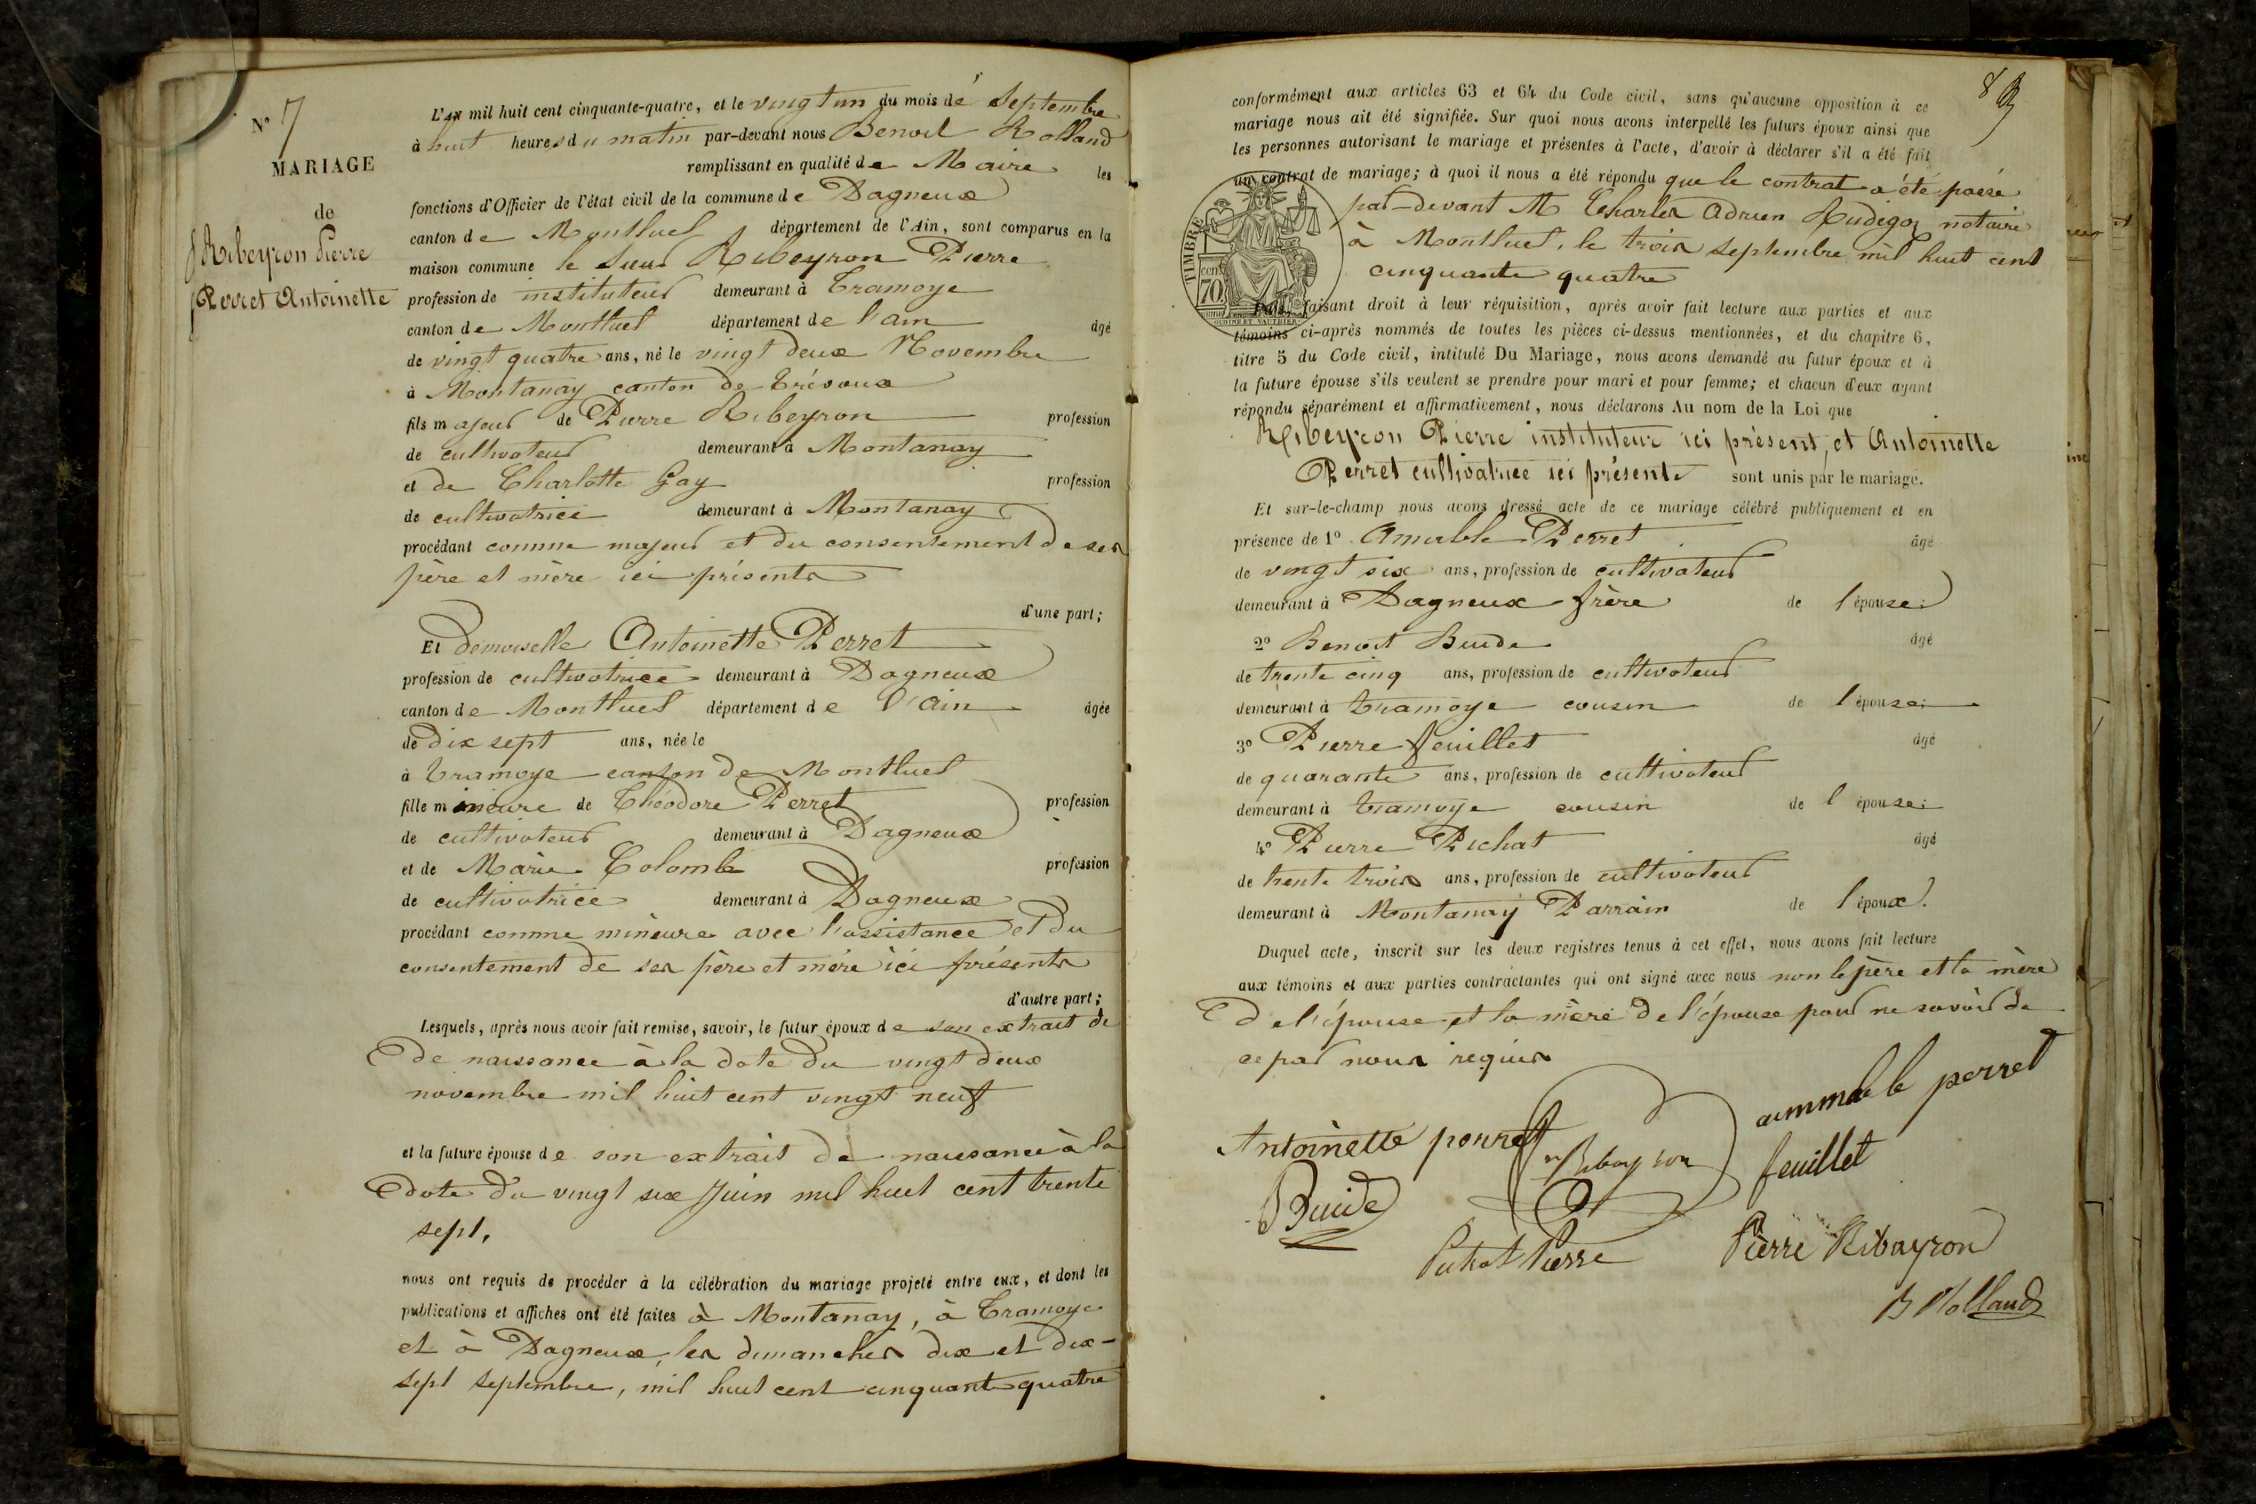 N° 7
MARIAGE
de
Ribeyron Pierre
Perret Antoinette
L'AN mil huit cent cinquante-quatre, et le vingt un du mois de Septembre
à huit heures du matin par-devant nous Benoit Rolland
remplissant en qualité de Maire les
fonctions d'Officier de l'état civil de la commune de Dagneux
canton de Montluel département de l'Ain, sont comparus en la
maison commune le Sieur Ribeyron Pierre
profession de instituteur demeurant à Tramoye
canton de Montluel département de l'ain âgé
de vingt quatre ans, né le vingt deux Novembre
à Montanay canton de Trévoux
fils majeur de Pierre Ribeyron profession
de cultivateur demeurant à Montanay
et de Charlotte Gay profession
de cultivatrice demeurant à Montanay
procédant comme majeur et du consentement de ses
père et mère ici présents
d'une part;
Et demoiselle Antoinette Perret
profession de cultivatrice demeurant à Dagneux
canton de Montluel département de l'ain âgée
de dix sept ans, née le
à Tramoye canton de Montluel
fille mineure de Théodore Perret profession
de cultivateur demeurant à Dagneux
et de Marie Colomb profession
de cultivatrice demeurant à Dagneux
procédant comme mineure avec l'assistance et du
consentement de ses père et mère ici présents
d'autre part;
Lesquels, après nous avoir fait remise, savoir, le futur époux de son extrait de
de naissance à la date du vingt deux
novembre mil huit cent vingt neuf
et la future épouse de son extrait de naissance à la
date du vingt six Juin mil huit cent trente
sept,
nous ont requis de procéder à la célébration du mariage projeté entre eux, et dont les
publications et affiches ont été faites à Montanay, à Tramoye
et à Dagneux, les dimanches dix et dix-
sept septembre, mil huit cent cinquante quatre
83
conformément aux articles 63 et 64 du Code civil, sans qu'aucune opposition à ce
mariage nous ait été signifiée. Sur quoi nous avons interpellé les futurs époux ainsi que
les personnes autorisant le mariage et présentes à l'acte, d'avoir à déclarer s'il a été fait
un contrat de mariage; à quoi il nous a été répondu que le contrat a été passé
par-devant M Charles Adrien Rudigoz notaire
à Montluel, le trois septembre mil huit cent
cinquante quatre
TIMBRE
cent
70
faisant droit à leur réquisition, après avoir fait lecture aux parties et aux
témoins ci-après nommés de toutes les pièces ci-dessus mentionnées, et du chapitre 6,
titre 5 du Code civil, intitulé Du Mariage, nous avons demandé au futur époux et à
la future épouse s'ils veulent se prendre pour mari et pour femme; et chacun d'eux ayant
répondu séparément et affirmativement, nous déclarons Au nom de la Loi que
Ribeyron Pierre instituteur ici présent, et Antoinette
Perret cultivatrice ici présente sont unis par le mariage.
Et sur-le-champ nous avons dressé acte de ce mariage célébré publiquement et en
présence de 1° Amable Perret âgé
de vingt six ans, profession de cultivateur
demeurant à Dagneux frère de l'épouse;
2° Benoit Buide âgé
de trente cinq ans, profession de cultivateur
demeurant à Tramoye cousin de l'épouse;
3° Pierre feuillet âgé
de quarante ans, profession de cultivateur
demeurant à Tramoye cousin de l'épouse;
4° Pierre Pichat âgé
de trente trois ans, profession de cultivateur
demeurant à Montanay Parrain de l'époux.
Duquel acte, inscrit sur les deux registres tenus à cet effet, nous avons fait lecture
aux témoins et aux parties contractantes qui ont signé avec nous non le père et la mère
de l'épouse et la mère de l'épouse pour ne savoir de
ce par nous requis
Antoinette perret
Ribeyron
aimmable perret
Buide
feuillet
Pichat Pierre
Pierre Ribayron
B Rolland